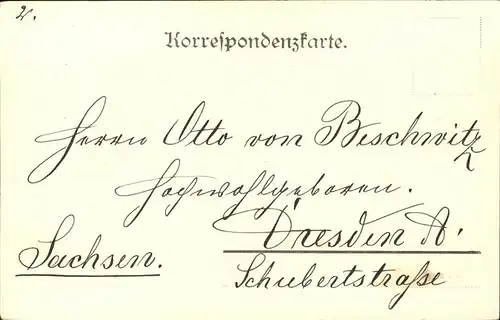 2.
Korrespondenzkarte.
Herrn Otto von Beschwitz
Hochwohlgeboren.
Dresden A.
Sachsen.
Schubertstraße